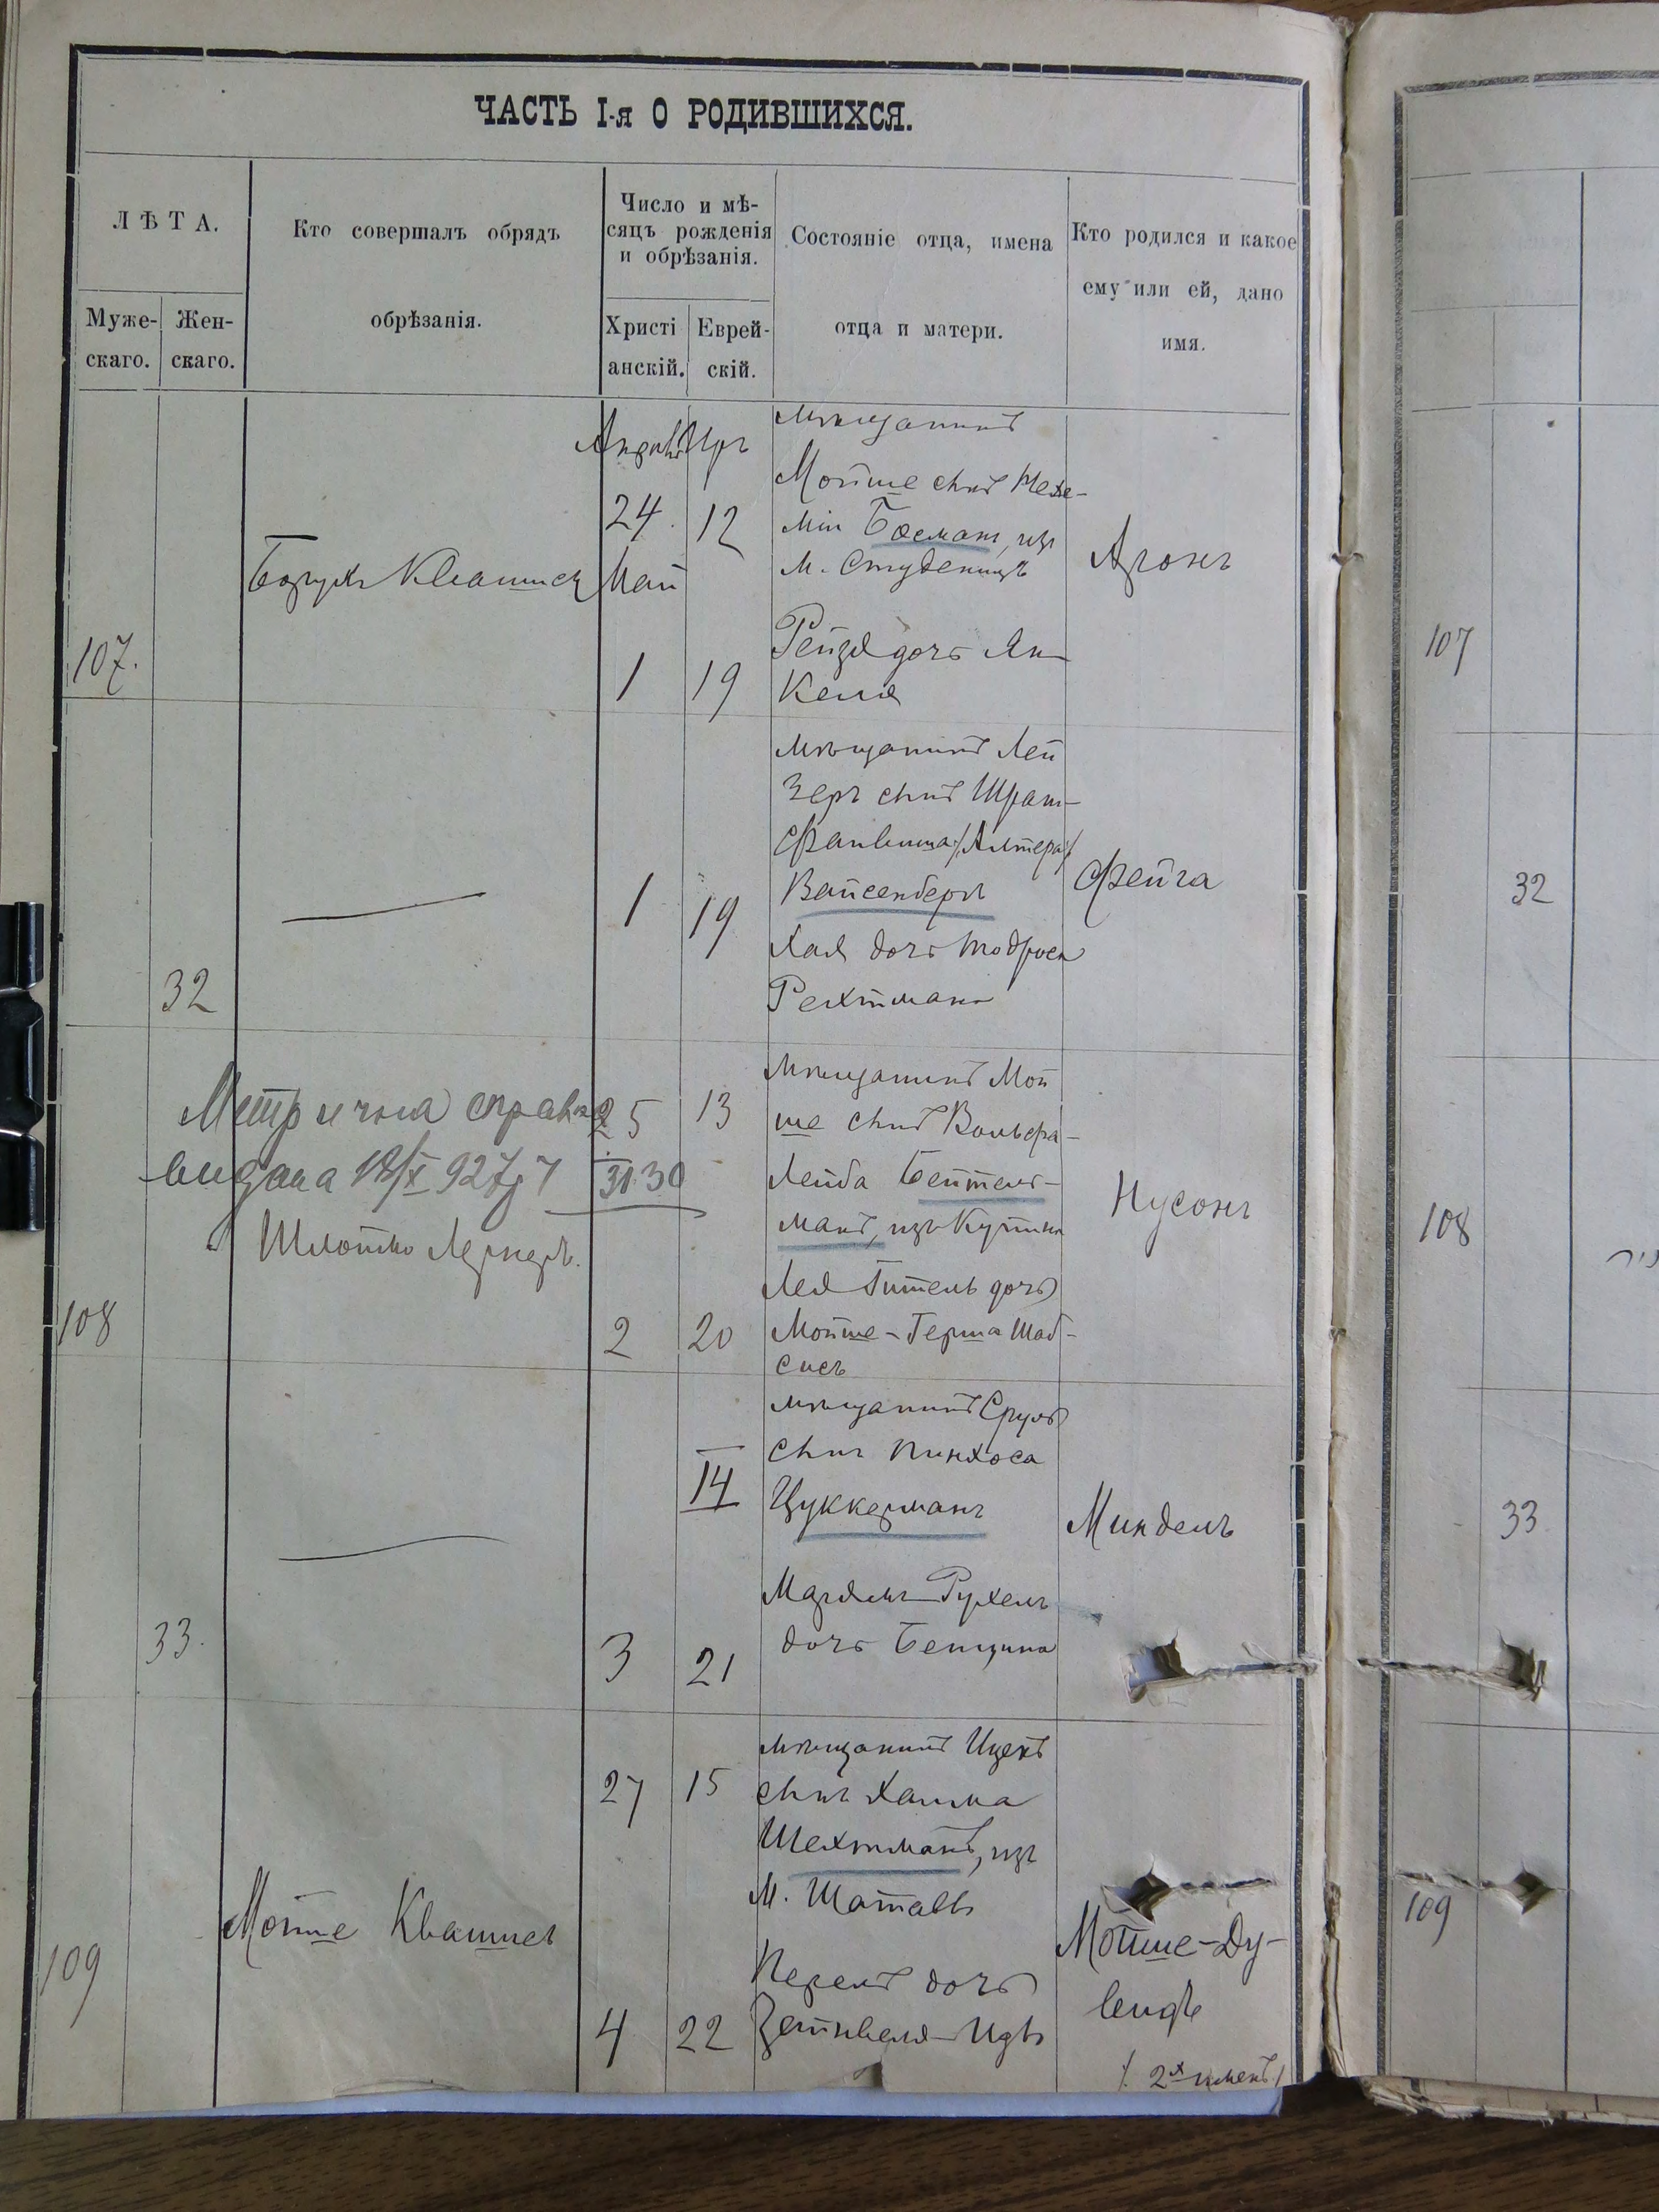 ЧАСТЬ I-я О РОДИВШИХСЯ.
ЛѢТА.
Муже-
скаго.
Жен-
скаго.
Кто совершалъ обрядъ
обрѣзанія.
Число и мѣ-
сяцъ рожденія
и обрѣзанія.
Христі
анскій.
Еврей-
скій.
Состояніе отца, имена
отца и матери.
Кто родился и какое
ему или ей, дано
имя.
107.
Апрѣль
24.
Май
1
12
19
мѣщанинъ
Мойше сынъ
изъ
м. Студеницъ
Рейзя дочь Ян-
келя
Аронъ
107
32
1
19
мѣщанинъ Лей
зеръ сынъ Шрага-
Файвиша /Алтера/
Вайсенбергъ
Хая дочь Тодроса
Рехтманъ
Фейга
32
108
Метрична справка
видана 18/X 927 р
Шлойме Лернеръ.
25
31 30
2
13
20
мѣщанинъ Мой
ше сынъ Вольфа-
Лейба Бейтель-
манъ, изъ Купина
Лея Гитель дочь
Мойше-Герша Шаб-
сисъ
Нусонъ
108
33.
3
14
21
мѣщанинъ Сруль
сынъ Пинхоса
Цуккерманъ
Марьямъ-Рухель
дочь Бенциона
Миндель
33
109
Мойше Квашнеъ
27
4
15
22
мѣщанинъ Ицекъ
сынъ Хаима
Шехтманъ, изъ
м. Шатавы
Перель дочь
Мойше-Ду-
видъ
/. 2х именъ /
109